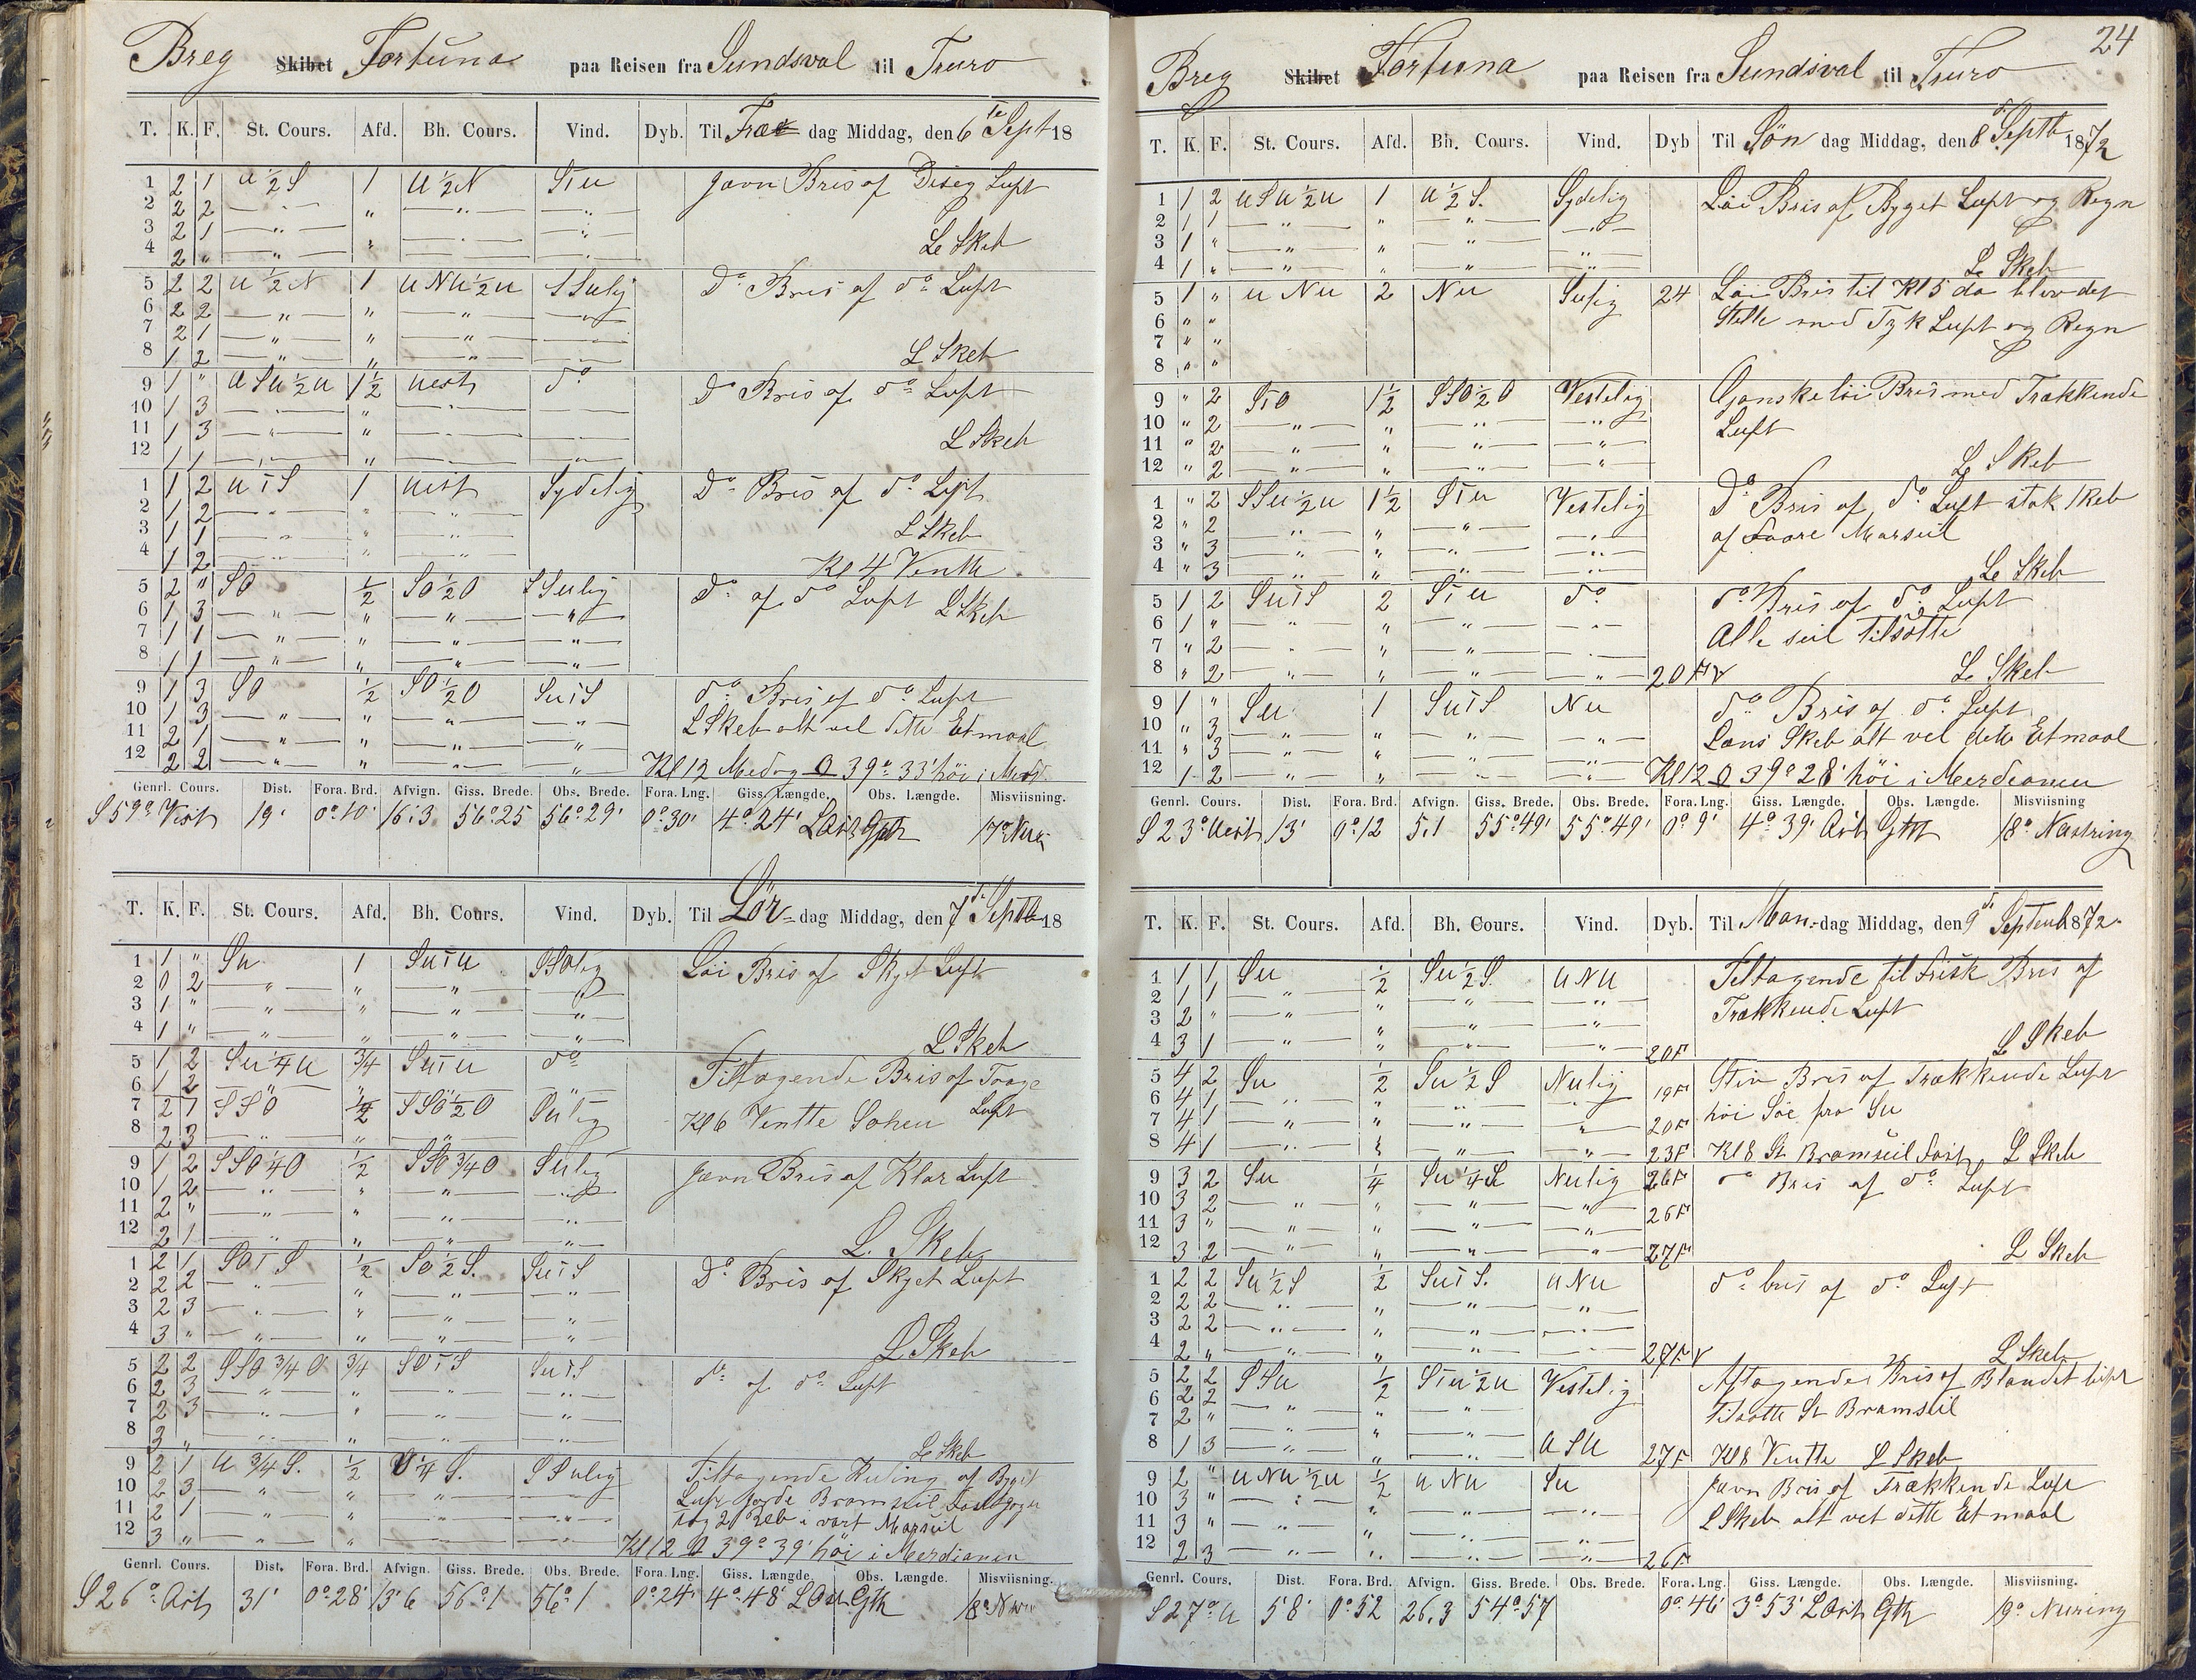 Breg Skibet Fortuna paa Reisen fra Sundsval til Truro
T. K. F. St. Cours. Afd. Bh. Cours. Vind. Dyb. Til Fre dag Middag, den 6 te Sept 18
1 2 1 U ½ S 1 U ½ N S i U Javn Bris af Diseg Luft
2 2 2 — " — " — " — — " —
3 2 1 — " — " — " — — " —
4 2 " — " — " — " — — " — Le Skeb
5 2 2 U ½ N 1 U N U ½ U S Sulig Do Bris af do Luft
6 2 2 — " — " — " — — " —
7 2 1 — " — " — " — — " —
8 1 2 — " — " — " — — " — L Skeb
9 1 " U S U ½ U 1½ Uest do Do Bris af do Luft
10 1 3 — " — " — " — — " —
11 1 3 — " — " — " — — " — L Skeb
12 1 1 — " — " — " — — " —
1 1 2 U i S 1 Uest Sydelig Do Bris af do Luft
2 1 2 — " — " — " —
3 1 1 — " — " — " — L Skeb
4 1 2 — " — " — " — Kl 4 Ventte
5 2 " SO ½ SO ½ O S Sulig Do af do Luft L Skeb
6 1 3 — " — " — " — — " —
7 1 1 — " — " — " — — " —
8 1 1 — " — " — " — — " —
9 1 3 SO ½ SO ½ O SU i S do Bris af do Luft
10 1 3 — " — " — " — — " — L Skeb alt vel dette Etmaal
11 2 1 — " — " — " — — " —
12 2 2 — " — " — " — — " — Kl 12 Medag O 39° 33' höi i Merd
Genrl. Cours. Dist. Fora. Brd. Afvign. Giss. Brede. Obs. Brede. Fora. Lng. Giss. Længde. Obs. Længde. Misviisning.
S 59° Vest 19' 0° 10' 16:3 56° 25 56° 29' 0° 30' 4° 24' L Ost Gth 17°
T. K. F. St. Cours. Afd. Bh. Cours. Vind. Dyb. Til Lör- dag Middag, den 7 de Septb 18
1 1 " SU 1 SU i U SSOlig Löi Bris af Skyet Luft
2 0 2 — " — " — " — "
3 1 " — " — " — " — — " —
4 1 " — " — " — " — — " — L Skeb
5 1 2 SU ¼ U ¾ SU i U do Tiltagende Bris af Taage
6 1 2 — " — — " — " Luft
7 2 1 SSO ½ SSO ½ O Sulig Kl 6 Ventte Sohen
8 2 3 — " — " — " —
9 1 2 SSO ¼ O ½ SSO ¾ O Sulig Javn Bris af Klar Luft
10 1 2 — " — " — " — — " —
11 2 " — " — " — " — — " —
12 2 1 — " — " — " — — " — L. Skeb
1 2 1 SO i S ½ SO ½ S. SU i S Do Bris af Skyet Luft
2 2 2 — " — " — " — — " —
3 2 3 — " — " — " — — " —
4 3 " — " — " — " — — " — L Skeb
5 2 2 SSO ¾ O ¾ SO i S SU i S do af do Luft
6 2 3 — " — " — " — — " —
7 2 3 — " — " — " — — " —
8 3 " — " — " — " — — " — Le Skeb
9 2 1 U ¾ S. ½ O ¼ S. S Sulig Tiltagende Kuling af Byget
10 2 3 — " — " — " — — " — Luft gjorde Bramseil fast
11 2 1 — " — " — " — — " — tog 2 Reb i vort Marseil
12 3 " — " — " — " — — " — Kl 12 O 39° 39' höi i Merdianen
Genrl. Cours. Dist. Fora. Brd. Afvign. Giss. Brede. Obs. Brede. Fora. Lng. Giss. Længde. Obs. Længde. Misviisning.
S 26° Ost 31' 0° 28' 13'6 56° 1 56° 1 0° 24' 4° 48' L Ost Gth 18°
24
Breg Skibet Fortuna paa Reisen fra Sundsval til Truro
T. K. F. St. Cours. Afd. Bh. Cours. Vind. Dyb Til Sön dag Middag, den 8 d Septb 1872
1 1 2 U S U ½ U 1 U ½ S. Sydelig Löi Bris af Byget Luft og Regn
2 1 1 — " — " — " — — " —
3 1 " — " — " — " — — " —
4 1 " — " — " — " — — " — Le Skeb
5 1 " U N U 2 N U Sulig 24 Löi Bris til Kl 5 da blev det
6 " " Stille med Tyk Luft og Regn
7 " "
8 " "
9 " 2 S i O 1½ SSO ½ O Vestelig Ganske löi Bris med Trækkende
10 " 2 — " — " — " — — " — Luft
11 " 2 — " — " — " — — " —
12 " 2 — " — " — " — — " — Le Skeb
1 " 2 SSU ½ U 1½ S i U Vestelig Do Bris af do Luft stak 1 Reb
2 " 2 — " — " — " — — " — af Store Marseil
3 " 3 — " — " — " — — " —
4 " 3 — " — " — " — — " — Le Skeb
5 1 2 SU i S 2 S i U do do Bris af do Luft
6 1 " — " — " — " — — " — Alle seil tilsatte
7 " 2 — " — " — " — — " —
8 " 2 — " — " — " — — " — 20 F V Le Skeb
9 1 " SU 1 SU i S NU do Bris af do Luft
10 " 3 — " — " — " — — " — Læns Skeb alt vel dette Etmaal
11 " 3 — " — " — " —
12 1 2 — " — " — " — — " — Kl 12 O 39° 28' höi i Meerdianen
Genrl. Cours. Dist. Fora. Brd. Afvign. Giss. Brede. Obs. Brede. Fora. Lng. Giss. Længde. Obs. Længde. Misviisning
S 23° Uest 13' 0° 12 5.1 55° 49' 55° 49' 0° 9' 4° 39' Ost Gth 18°
T. K. F. St. Cours. Afd. Bh. Cours. Vind. Dyb. Til Man- dag Middag, den 9 d Septemb 1872.
1 1 1 SU ½ SU ½ S. U N U Tiltagende til Frisk Bris af
2 1 1 — " — " — " — — " — Trækkende Luft
3 2 " — " — " — " — — " —
4 3 1 — " — " — " — — " — 20 F L Skeb
5 4 2 SU ½ SU ½ S NUlig Stiv Bris af Trækkende Luft
6 4 1 — " — " — " — — " — 19 F höi Söe fra SU
7 4 1 — " — " — " — — " — 20 F
8 4 1 — " — " — " — — " — 23 F Kl 8 St Bramseil fast L Skeb
9 3 2 SU ¼ SU ¼ S NUlig 26 F do Bris af do Luft
10 3 2 — " — " — " — — " — 26 F
11 3 " — " — " — " — — " —
12 3 2 — " — " — " — — " — 27 F L Skeb
1 2 2 SU ½ S ½ SU i S. U N U do bris af do Luft
2 2 2 — " — " — " — — " —
3 2 2 — " — " — " — — " —
4 2 " — " — " — " — — " — 27 F V L Skeb
5 2 2 SSU ½ S i U ½ U Vestelig Aftagende Bris af Blandet luft
6 2 2 — " — " — " — tilsatte St Bramseil
7 2 " — " — " — " —
8 1 3 — " — " — " — U S U 27 F Kl 8 Ventte L Skeb
9 2 " U N U ½ U ½ U N U SU Javn Bris af Trækkende Luft
10 3 " — " — " — " — — " — L Skeb alt vel dette Etmaal
11 3 " — " — " — " — — " —
12 2 3 — " — " — " — — " — 26 F
Genrl. Cours. Dist. Fora. Brd. Afvign. Giss. Brede. Obs. Brede. Fora. Lng. Giss. Længde. Obs. Længde. Misviisning.
S 27° U 58' 0° 52 26.3 54° 57 0° 46' 3° 53' L Ost Gth 19°